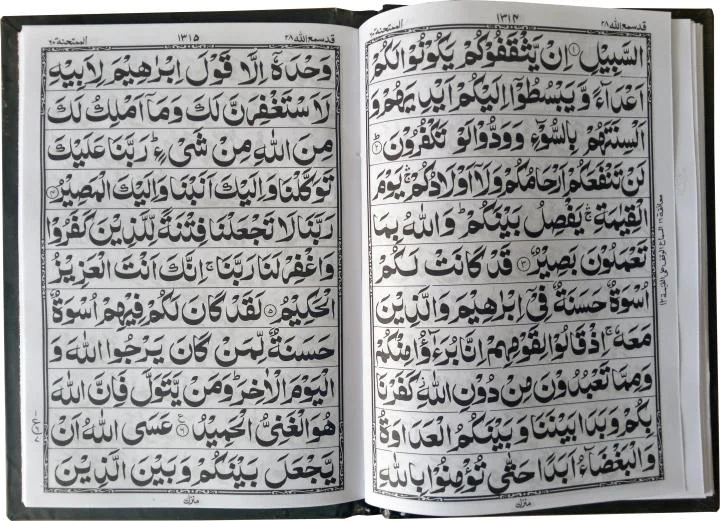 قد سمع الله ٢٨
١٣١٤
الممتحنة ٦٠
السَّبِيْلِ ① اِنْ يَّثْقَفُوْكُمْ يَكُوْنُوْا لَكُمْ
اَعْدَآءً وَّ يَبْسُطُوْۤا اِلَيْكُمْ اَيْدِيَهُمْ وَ
اَلْسِنَتَهُمْ بِالسُّوْٓءِ وَ وَدُّوْا لَوْ تَكْفُرُوْنَ ؕ②
لَنْ تَنْفَعَكُمْ اَرْحَامُكُمْ وَ لَاۤ اَوْلَادُكُمْ ۛۚ يَوْمَ
الْقِيٰمَةِ ۛۚ يَفْصِلُ بَيْنَكُمْ ؕ وَ اللّٰهُ بِمَا
تَعْمَلُوْنَ بَصِيْرٌ ③ قَدْ كَانَتْ لَكُمْ
اُسْوَةٌ حَسَنَةٌ فِيْۤ اِبْرٰهِيْمَ وَ الَّذِيْنَ
مَعَهٗ ۚ اِذْ قَالُوْا لِقَوْمِهِمْ اِنَّا بُرَءٰٓؤُا مِنْكُمْ
وَ مِمَّا تَعْبُدُوْنَ مِنْ دُوْنِ اللّٰهِ ؗ كَفَرْنَا
بِكُمْ وَ بَدَا بَيْنَنَا وَ بَيْنَكُمُ الْعَدَاوَةُ
وَ الْبَغْضَآءُ اَبَدًا حَتّٰى تُؤْمِنُوْا بِاللّٰهِ
منزل
قد سمع الله ٢٨
١٣١٥
الممتحنة ٦٠
وَحْدَهٗۤ اِلَّا قَوْلَ اِبْرٰهِيْمَ لِاَبِيْهِ
لَاَسْتَغْفِرَنَّ لَكَ وَ مَاۤ اَمْلِكُ لَكَ
مِنَ اللّٰهِ مِنْ شَيْءٍ ؕ رَبَّنَا عَلَيْكَ
تَوَكَّلْنَا وَ اِلَيْكَ اَنَبْنَا وَ اِلَيْكَ الْمَصِيْرُ ④
رَبَّنَا لَا تَجْعَلْنَا فِتْنَةً لِّلَّذِيْنَ كَفَرُوْا
وَ اغْفِرْ لَنَا رَبَّنَا ۚ اِنَّكَ اَنْتَ الْعَزِيْزُ
الْحَكِيْمُ ⑤ لَقَدْ كَانَ لَكُمْ فِيْهِمْ اُسْوَةٌ
حَسَنَةٌ لِّمَنْ كَانَ يَرْجُوا اللّٰهَ وَ
الْيَوْمَ الْاٰخِرَ ؕ وَ مَنْ يَّتَوَلَّ فَاِنَّ اللّٰهَ
هُوَ الْغَنِيُّ الْحَمِيْدُ ⑥ عَسَى اللّٰهُ اَنْ
يَّجْعَلَ بَيْنَكُمْ وَ بَيْنَ الَّذِيْنَ
منزل